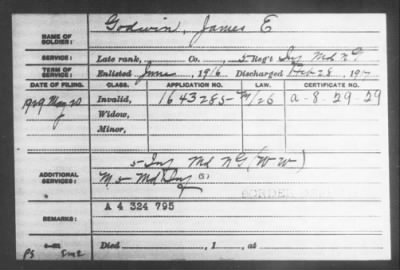 Godwin, James E
NAME OF
SOLDIER:
SERVICE: Late rank, Co. , 5 Reg't Inf Md N G
TERM OF
SERVICE: Enlisted June , 1916 Discharged Feb 28 , 191
DATE OF FILING. CLASS. APPLICATION NO. LAW. CERTIFICATE NO.
1929 May 20 Invalid, 1643285 a-8-29-29
Widow,
Minor,
5 Inf Md N G (W W)
ADDITIONAL
SERVICES: Md Inf
A 4 324 795
REMARKS:
Died , 1 , at